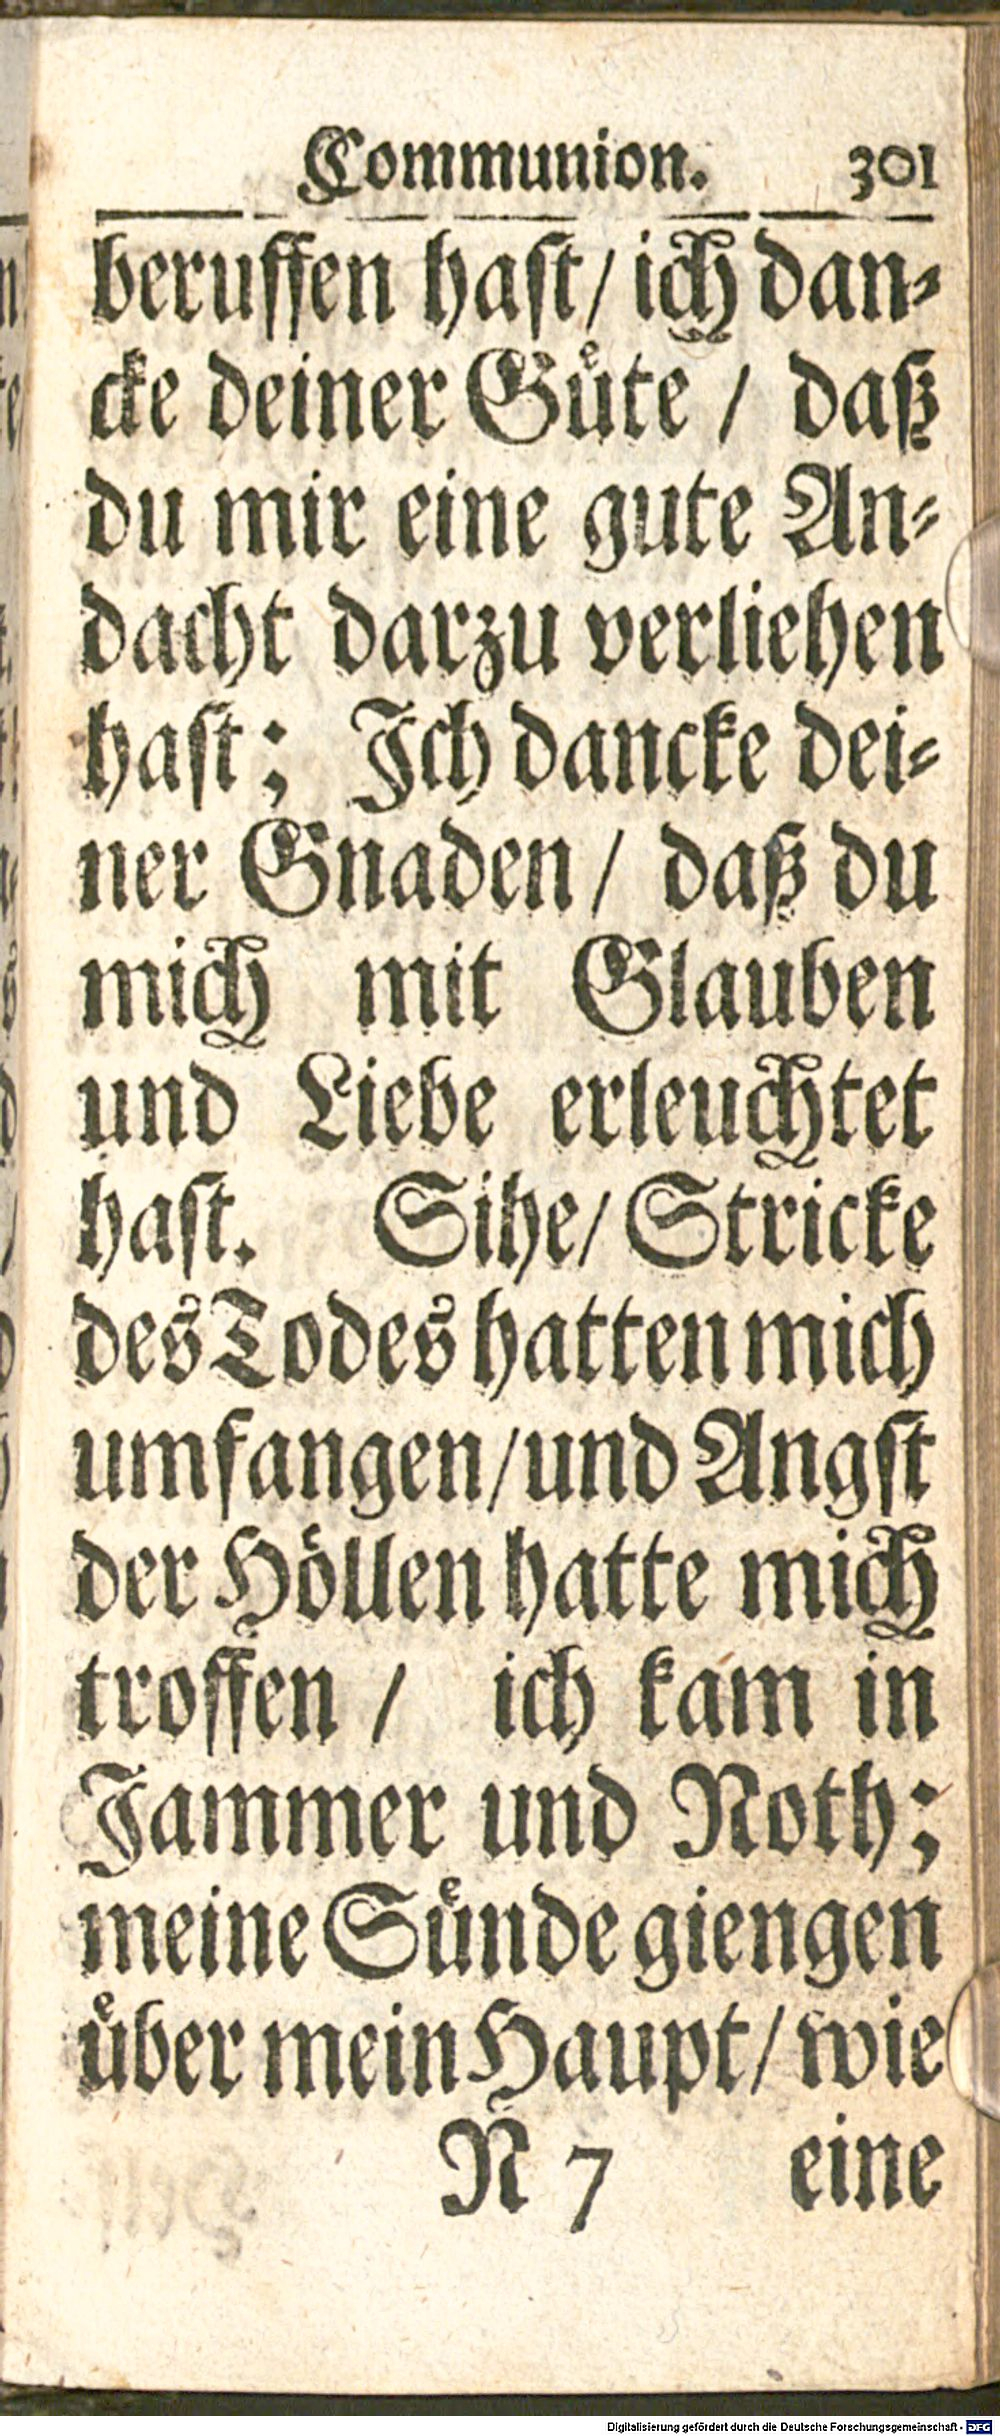 Communion. 301
beruffen hast/ ich dan-
cke deiner Guͤte / daß
du mir eine gute An-
dacht darzu verliehen
hast; Ich dancke dei-
ner Gnaden/ daß du
mich mit Glauben
und Liebe erleuchtet
hast. Sihe/ Stricke
des Todes hatten mich
umfangen/ und Angst
der Höllen hatte mich
troffen / ich kam in
Jammer und Noth;
meine Suͤnde giengen
uͤber mein Haupt/ wie
N 7 eine
Digitalisierung gefördert durch die Deutsche Forschungsgemeinschaft - DFG